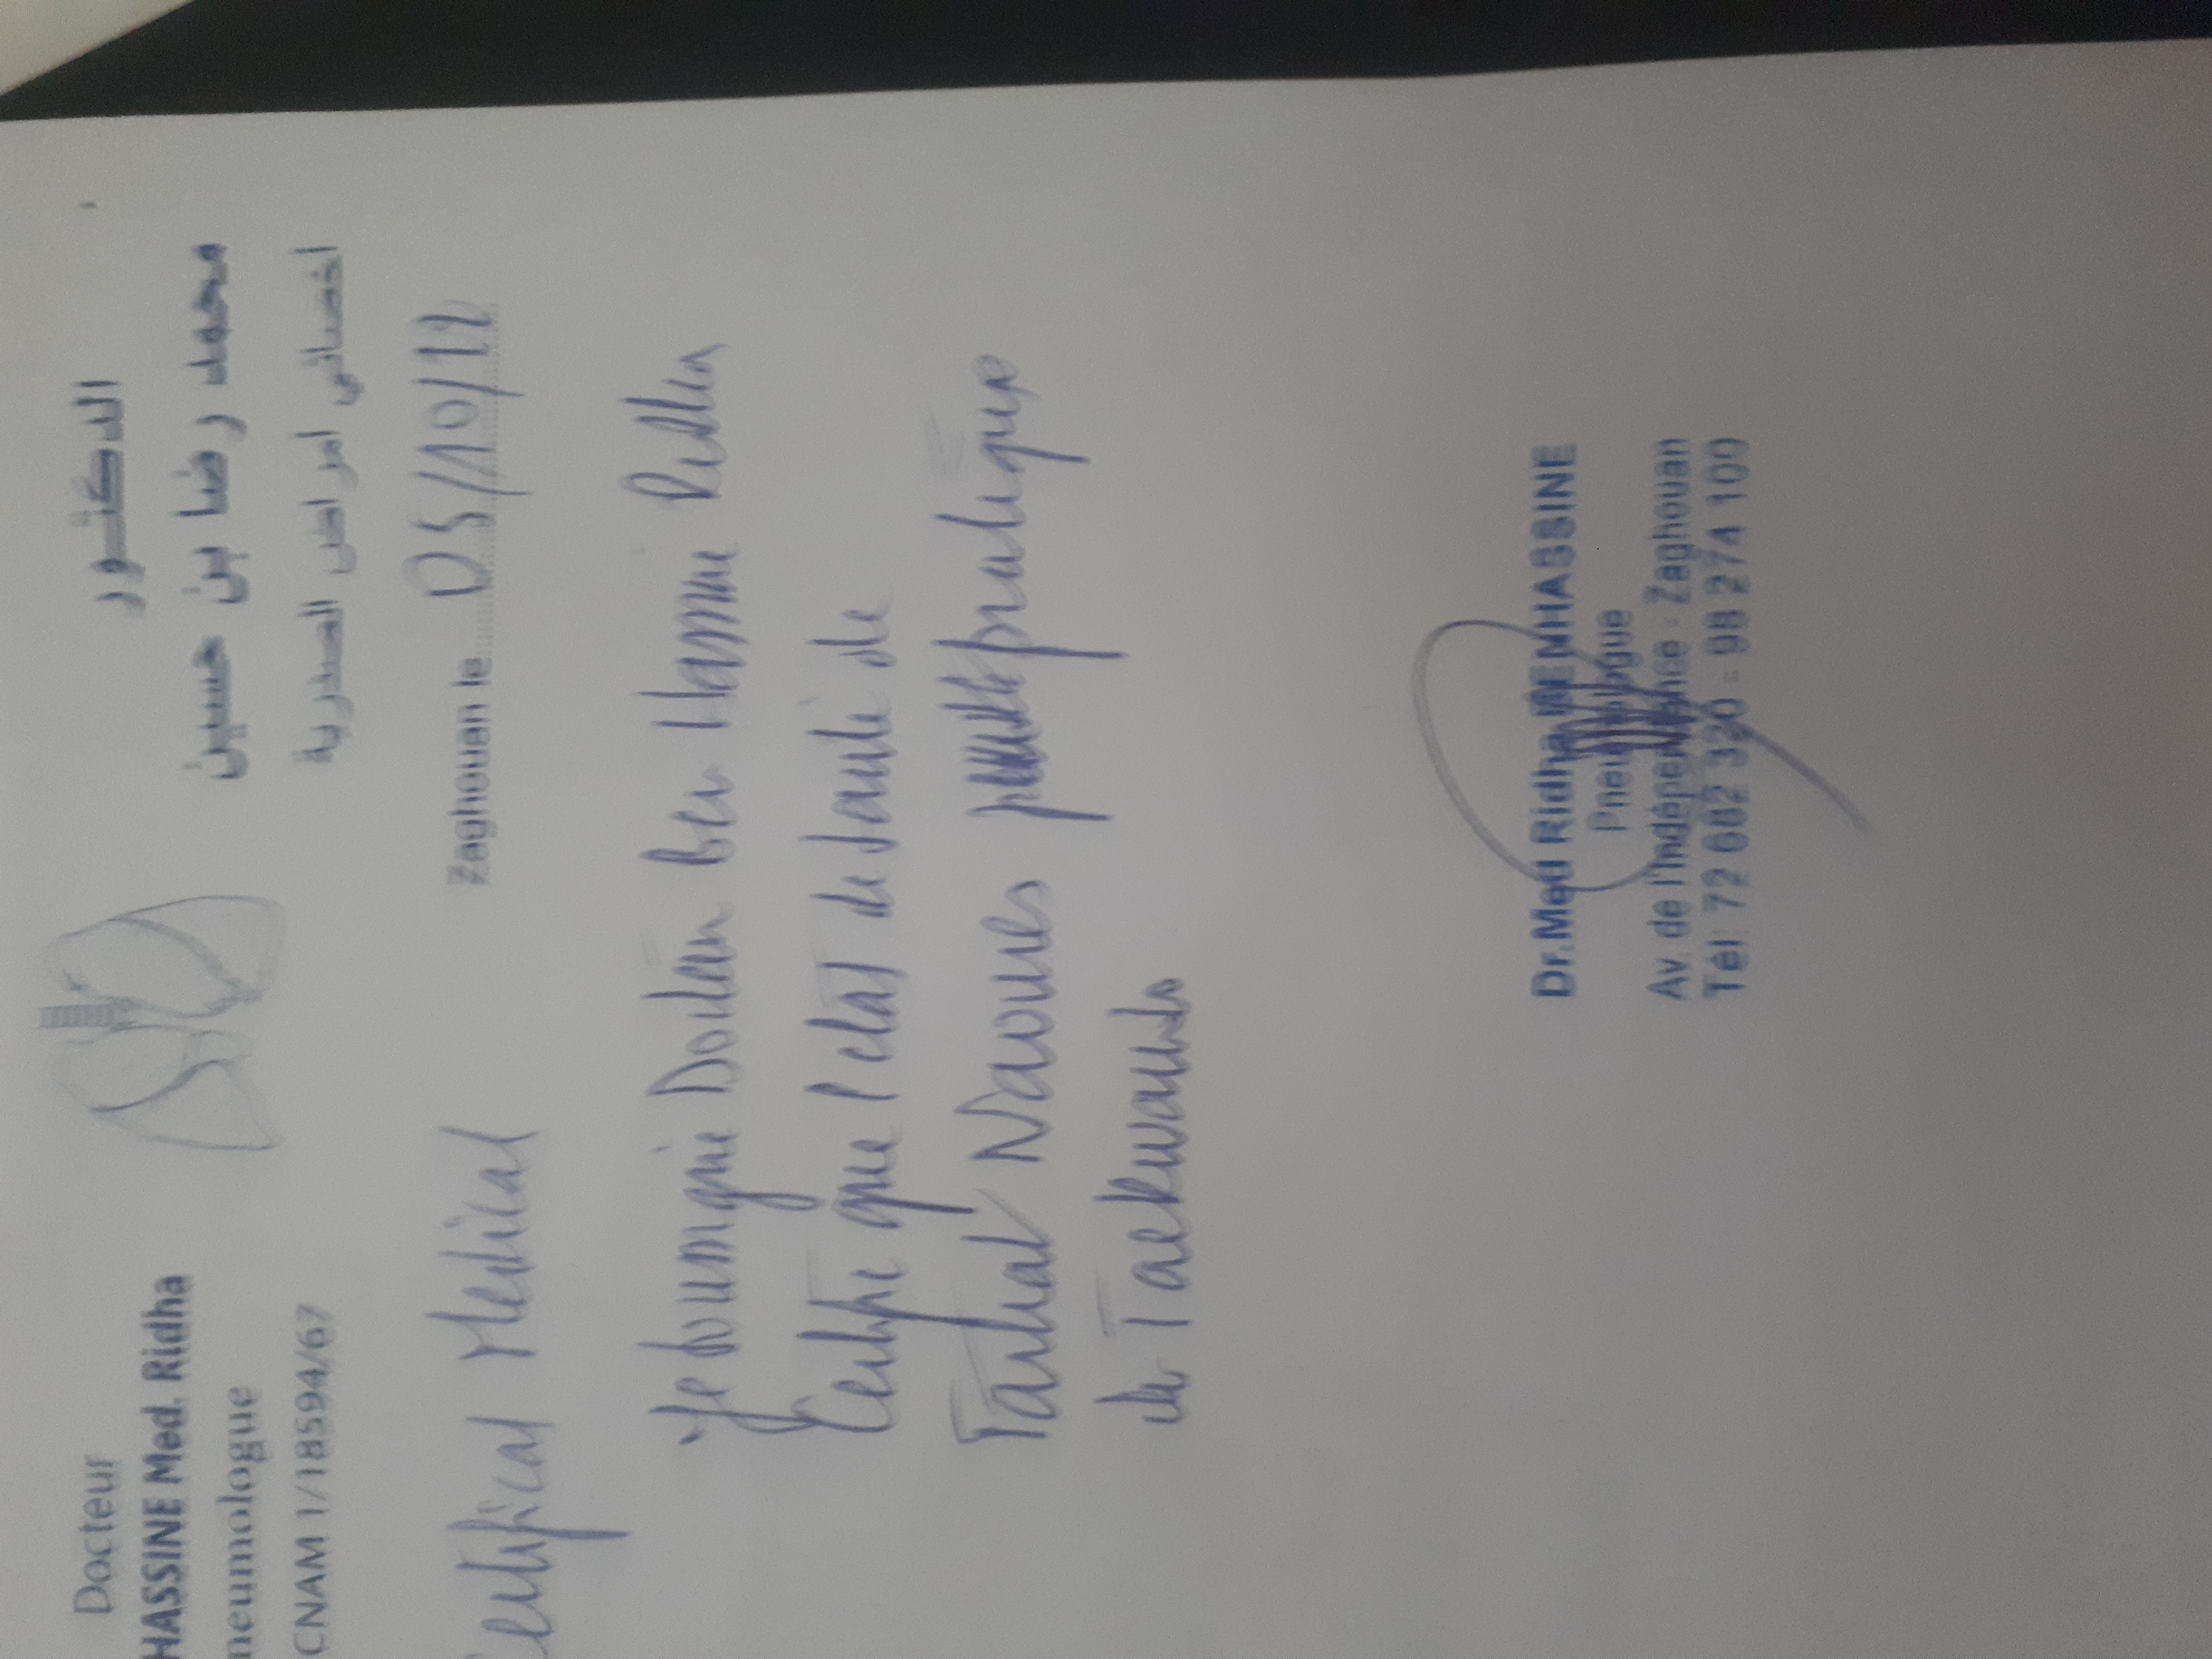 Docteur
HASSINE Med. Ridha
neumologue
CNAM 1/18594/67
الدكتور
محمد رضا بن حسين
اخصائي امراض الصدرية
Zaghouan le 05/10/22
Certificat Médical
Je soussigné Docteur Ben Hassine Ridha
Certifie que l'etat de santé de
Farhat pratique
de Taekwando
Dr. Med Ridha BENHASSINE
Pneumologue
Av. de l'Indépendance - Zaghouan
Tél: 72 682 320 - 98 274 100